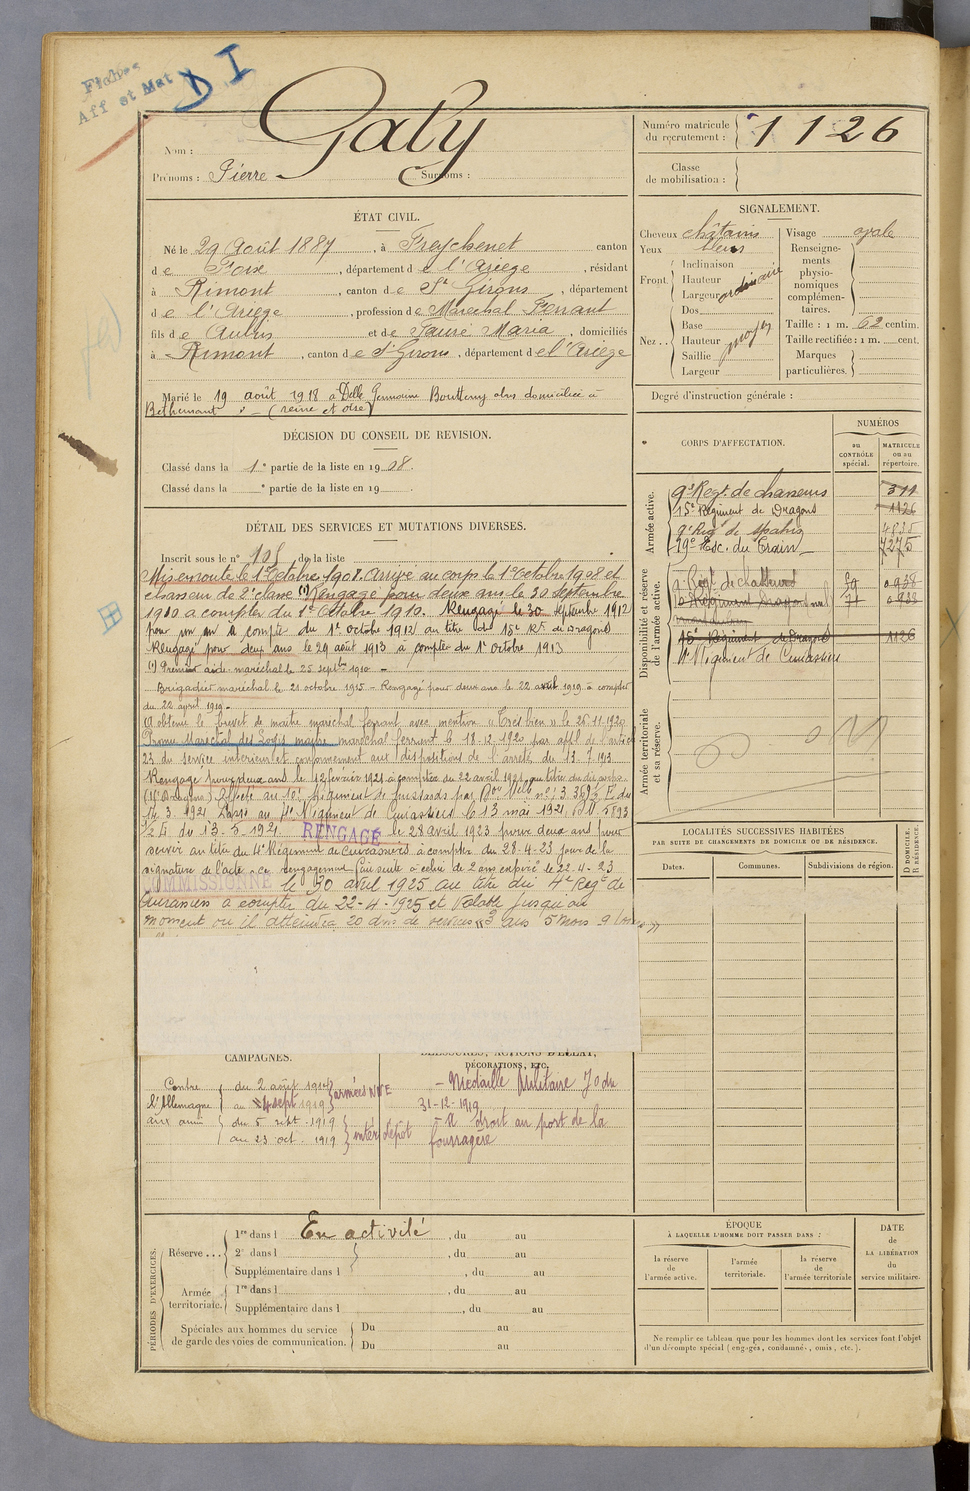 Fiches
Aff et Mat
D I
Nom : Galy
Prénoms : Pierre Surnoms :
Numéro matricule du recrutement : 1126
Classe de mobilisation :
ÉTAT CIVIL.
Né le 29 Août 1887, à Freychenet canton
de Foix, département de l'Ariège, résidant
à Rimont, canton de St Girons, département
de l'Ariège, profession de Maréchal Ferrant
fils de Aubin et de Fauré Maria, domiciliés
à Rimont, canton de St Girons, département de l'Ariège
Marié le 19 août 1918 à Delle Germaine
Bethemont (seine et oise)
SIGNALEMENT.
Cheveux châtains
Yeux bleus
Front. Inclinaison
Hauteur
Largeur ordinaire
Nez.. Dos
Base
Hauteur moyen
Saillie
Largeur
Visage ovale
Renseignements physionomiques complémentaires.
Taille : 1 m. 62 centim.
Taille rectifiée : 1 m. cent.
Marques particulières.
Degré d'instruction générale :
DÉCISION DU CONSEIL DE REVISION.
Classé dans la 1e partie de la liste en 1908.
Classé dans la e partie de la liste en 19 .
DÉTAIL DES SERVICES ET MUTATIONS DIVERSES.
Inscrit sous le n° de la liste
Mis en route le 1er Octobre 1908. Arrivé au corps le 1er Octobre 1908 et
chasseur de 2e classe (1) Rengagé pour deux ans le 20 septembre
1910 à compter du 1er Octobre 1910. Rengagé le 30 septembre 1912
pour un an à compter du 1er octobre 1912 au titre du 15e Rt de Dragons
Rengagé pour deux ans le 29 août 1913 à compter du 1er octobre 1913
(1) Premier aide-maréchal le 25 septbre 1910 -
Brigadier maréchal le 21 octobre 1915 - Rengagé pour deux ans le 22 avril 1919 à compter
du 22 avril 1919 -
A obtenu le brevet de maître maréchal ferrant avec mention « Très bien » le 26.11.1920
Promu Maréchal des Logis maître maréchal ferrant le 18.12.1920 par appl. de l'article
23 du service intérieur et conformément aux dispositions de l'arrêté du 13.7.1913
Rengagé pour deux ans le 12 février 1921 à compter du 22 avril 1921 au titre du dit corps
(15e Dragons). Affecté au 10e Régiment de Hussards par
14.3.1921 Passé au 4e Régiment de Cuirassiers le 13 mai 1921, 5893
1/2 E. du 13.5.1921. RENGAGÉ le 28 avril 1923 pour deux ans pour
servir au titre du 4e Régiment de Cuirassiers à compter du 28-4-23 jour de la
signature de l'acte - ce rengagement fait suite à celui de 2 ans expiré le 22-4-23
COMMISSIONNÉ le 30 avril 1925 au titre du 4e Régt de
Cuirassiers à compter du 22-4-1925 et valable jusqu'au
moment où il atteindra 20 ans de services « 3 ans 5 mois 9 jours »
CORPS D'AFFECTATION.
NUMÉROS
au CONTRÔLE spécial.
MATRICULE ou au répertoire.
Armée active.
9e Regt. de chasseurs 311
15e Régiment de Dragons 1126
9e Reg. de Spahis 4835
19e Esc. du Train 7275
Disponibilité et réserve de l'armée active.
15e Régiment de Dragons 1126
4e Régiment de Cuirassiers
Armée territoriale et sa réserve.
LOCALITÉS SUCCESSIVES HABITÉES
PAR SUITE DE CHANGEMENTS DE DOMICILE OU DE RÉSIDENCE.
Dates.
Communes.
Subdivisions de région.
D DOMICILE. R RÉSIDENCE.
CAMPAGNES.
Contre l'Allemagne
du 2 août 1914
au 4 sept 1919 armées N/NE
du 5 sept. 1919
au 23 oct. 1919 intér dépôt
BLESSURES, ACTIONS D'ÉCLAT,
DÉCORATIONS, ETC.
- Médaille Militaire J.O du
31-12-1919
- A droit au port de la
fourragère
PÉRIODES D'EXERCICES.
Réserve ... 1re dans l En activité, du au
2e dans l , du au
Supplémentaire dans l , du au
Armée territoriale. 1re dans l , du au
Supplémentaire dans l , du au
Spéciales aux hommes du service de garde des voies de communication. Du au
Du au
ÉPOQUE
À LAQUELLE L'HOMME DOIT PASSER DANS :
la réserve de l'armée active.
l'armée territoriale.
la réserve de l'armée territoriale
DATE
de
LA LIBÉRATION
du
service militaire.
Ne remplir ce tableau que pour les hommes dont les services font l'objet
d'un décompte spécial (engagés, condamnés, omis, etc.).